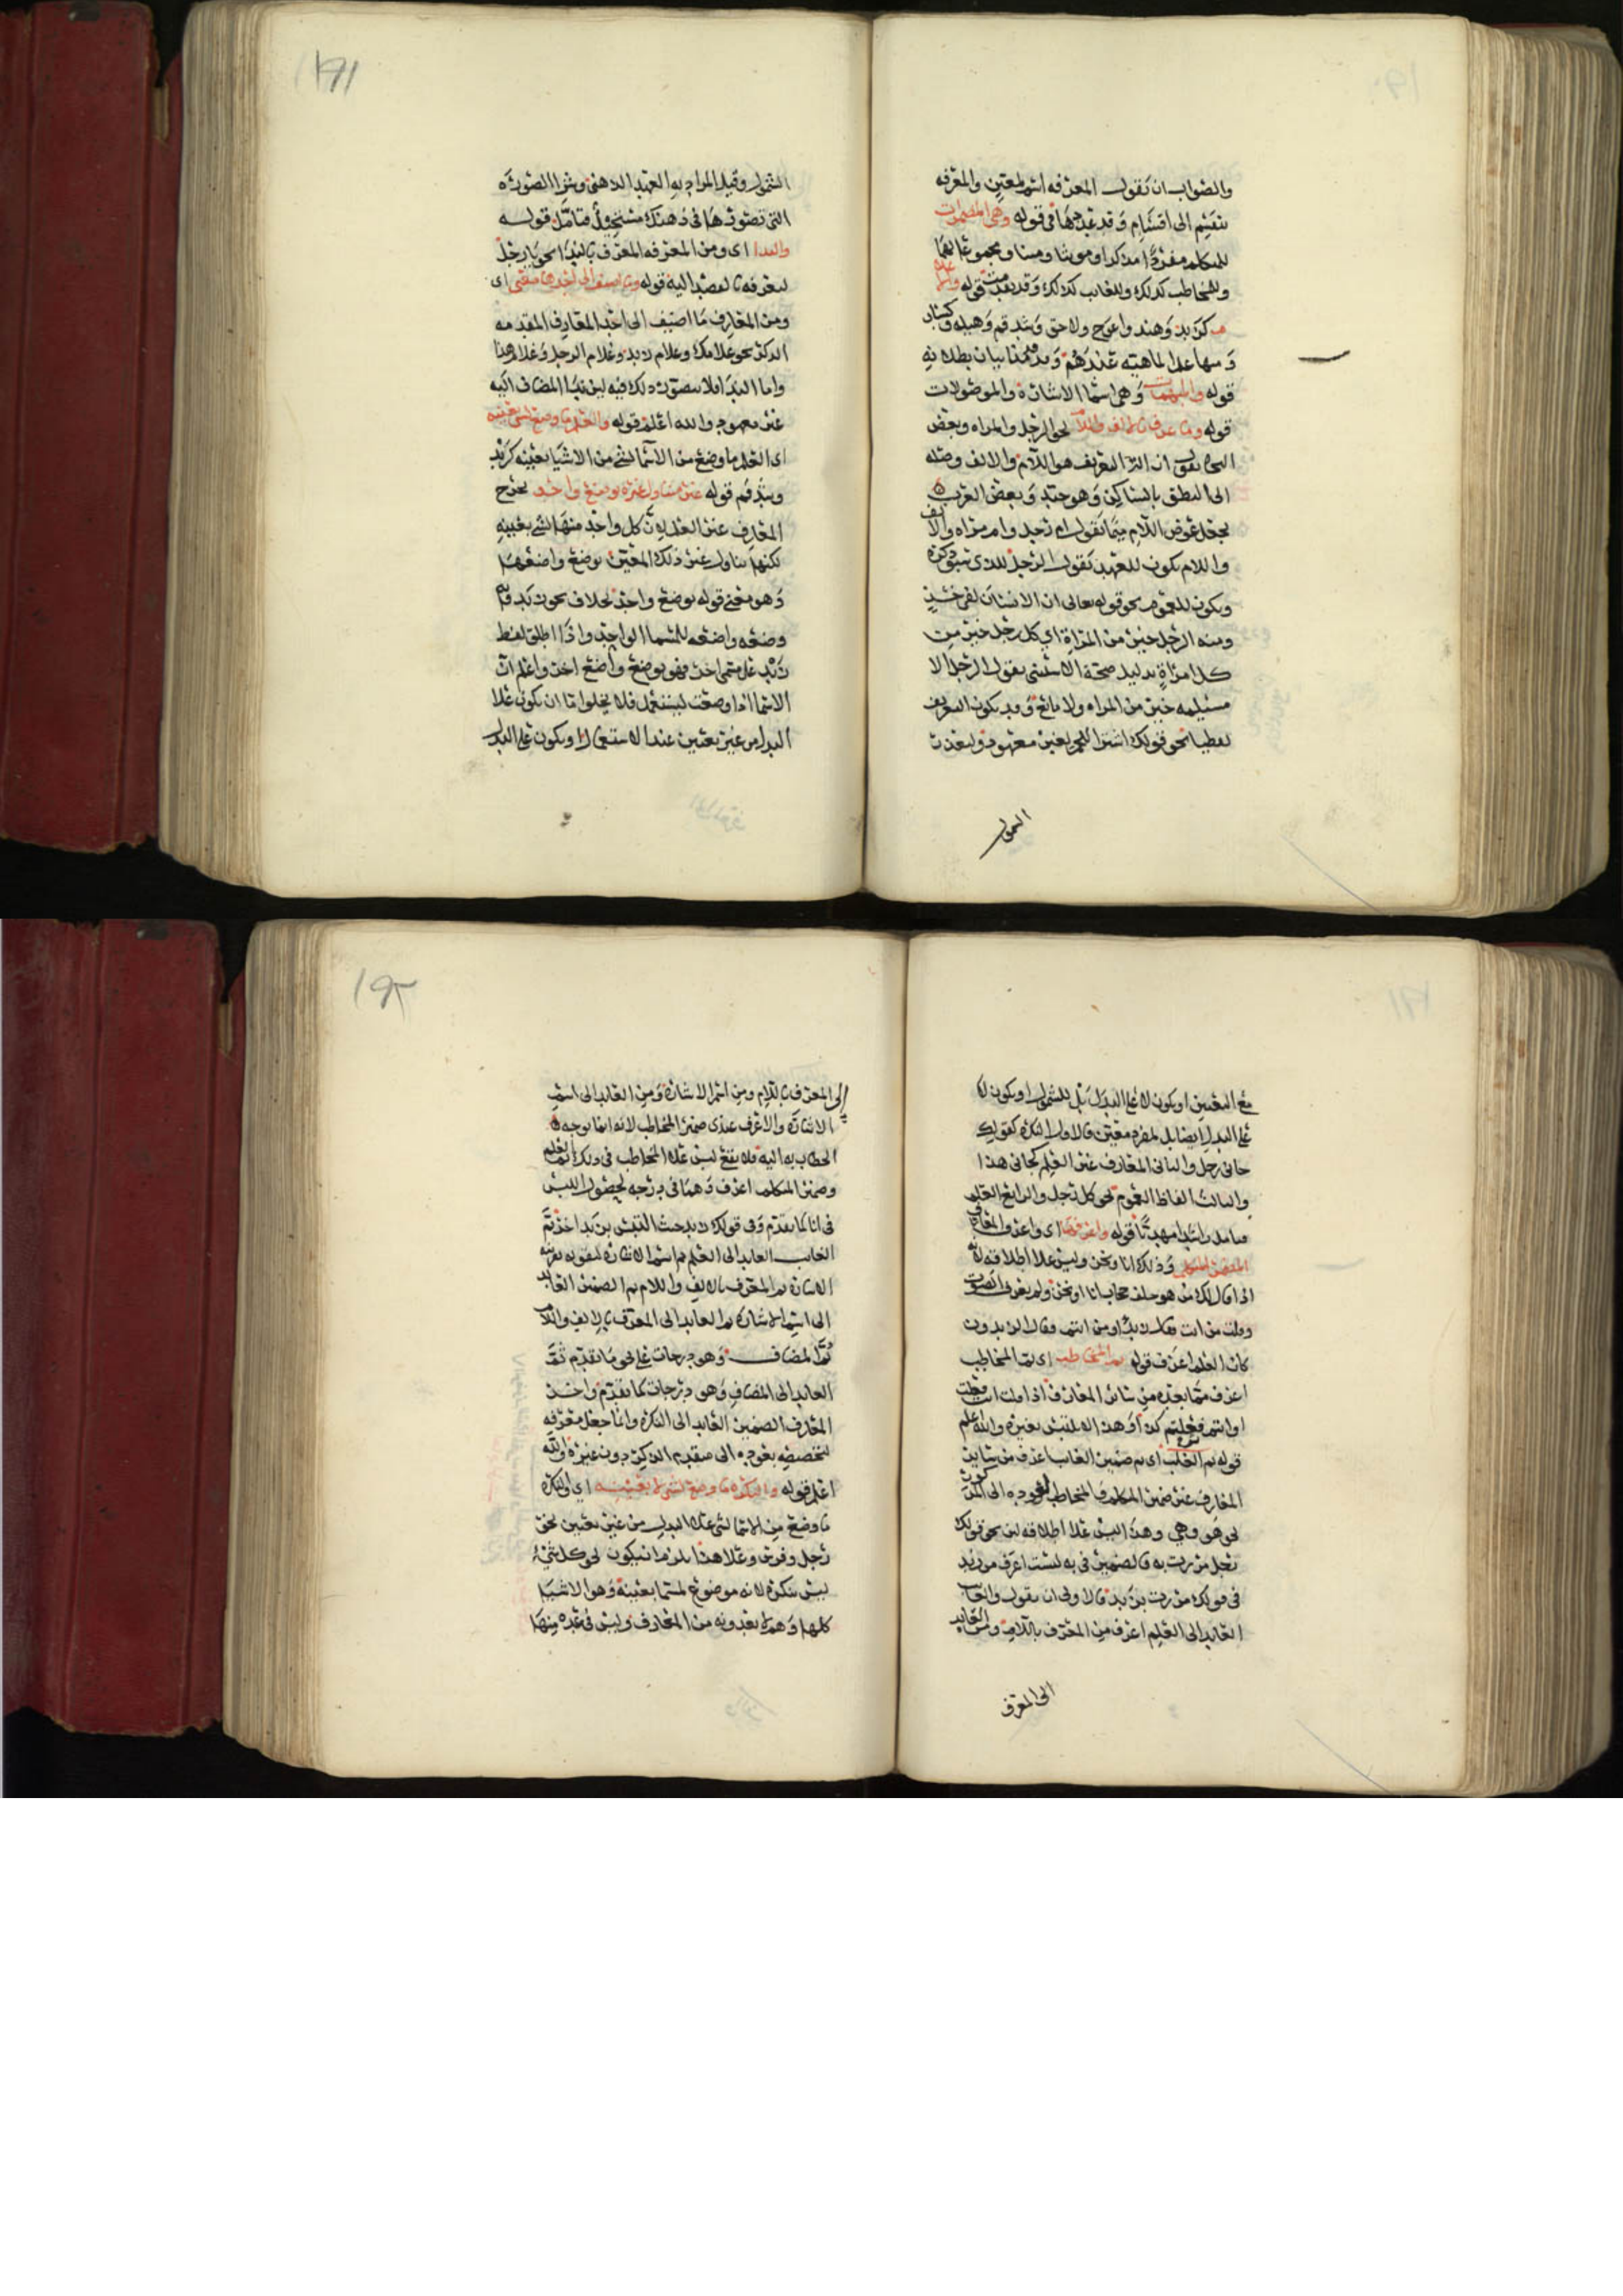 والصواب ان نقول المعرفه اسم لمعين والمعرفه
تنقسم الى اقسام وقد عدها في قوله وهي المضمرات
للمتكلم مفردا مذكرا ومونثا ومثنا ومجموعا
وللمخاطب كذلك وللغايب كذلك وقد تقدمت قوله والاعلام
كزيد وهند واعوج ولاحق وشدقم وهيله وكساب
ومنها علم الماهيه عندهم وقد قدمنا بيان بطلانه
قوله والمبهمات وهي اسما الاشارة والموصولات
قوله وما عرف بالالف واللام نحو الرجل والمراه وبعض
النحاه يقول ان الة التعريف هو اللام والالف وصله
الى النطق بالساكن وهو جيد وبعض العرب
يجعل عوض اللام ميما تقول ام رجل وام مراه والالف
واللام يكون للعهد تقول الرجل للذي سبق ذكره
ويكون للعموم نحو قوله تعالى ان الانسان لفي خسر
ومنه الرجل خير من المراة اي كل رجل خير من
كل امراة بدليل صحة الاستثنى يقول الرجل الا
مسيلمه خير من المراه ولا مانع وقد يكون التعريف
لفظيا نحو قولك اشتر اللحم لغير معهود ولتعذر
الشمول
١٩١
الشمول وقيل المراد به العهد الذهني وشرا الصورة
التي تصورتها في ذهنك مستحيل فتامل قوله
والندا اي ومن المعرفه المعرف بالندا نحو يا رجل
لتعرفه بالقصد اليه قوله وما اضيف الى احدها معنى اي
ومن المعارف ما اضيف الى احد المعارف المقدمه
الذكر نحو غلامك وغلام زيد وغلام الرجل وغلام هذا
واما الندا فلا يتصور ذلك فيه لان ندا المضاف اليه
غير معهود والله اعلم قوله والعلم ما وضع لشي بعينه
اي العلم ما وضع من الاسما لشي من الاشيا بعينه كزيد
وشدقم قوله غير متناول غيره بوضع واحد يخرج
المعارف غير العلم لان كل واحد منها لشي بعينه
لكنها تتناول غير ذلك المعين بوضع واضعها
وهو معنى قوله بوضع واحد بخلاف نحو زيد فانه
وضعه واضعه للمسما الواحد واذا اطلق لفظ
زيد على مسمى اخر فهو بوضع واضع اخر واعلم ان
الاسما اذا وضعت لتستعمل فلا يخلوا اما ان يكون على
البدل من غير تعيين عند الاستعمال او يكون على البدل
مع التعيين او يكون لا على البدل بل للشمول او يكون لا
على البدل ايضا بل لمفرد معين فالاول النكره كقولك
جاني رجل والثاني المعارف غير العلم كجاني هذا
والثالث الفاظ العموم نحو كل رجل والرابع العلم
قوله واعرفها اي واعرف المعارف
المضمر المتكلم وذلك انا ونحن وليس على اطلاقه لانه
اذا قال لك من هو خلف حجاب انا او نحن ولم يعرف الصوت
وقلت من انت فقال زيد او من انتم وقال الزيدون
كان العلم اعرف قوله ثم المخاطب اي ثم المخاطب
اعرف مما بعده من سائر المعارف اذا قلت انت فعلت
او انتم فعلتم كذا وهذا لا يلتبس بغيره والله اعلم
قوله ثم الغايب اي ثم ضمير الغايب اعرف من سائر
المعارف غير ضمير المتكلم والمخاطب لعوده الى المذكور
نحو هو وهي وهذا ليس على اطلاقه لان نحو قولك
رجل مررت به فالضمير في به ليست اعرف من زيد
في قولك مررت بزيد فالاولى ان يقول والغايب
العايد الى العلم اعرف من المعرف باللام ومن العايد
الى المعرف
١٩٢
الى المعرف باللام ومن اسم الاشارة ومن العايد الى اسم
الاشارة والاعرف عندي ضمير المخاطب لانه انما توجه
الخطاب به اليه فلا يقع لبس على المخاطب في ذلك ثم العلم
وضمير المتكلم اعرف وهما في درجه لحصول اللبس
في انا كما تقدم وفي قولك زيد حيث التبس بزيد اخر ثم
الغايب العايد الى العلم ثم اسم الاشارة لتقويه بقرينه
الاشارة ثم المعرف بالالف واللام ثم الضمير العايد
الى اسم الاشارة ثم العايد الى المعرف بالالف واللام
ثم المضاف وهو درجات على نحو ما تقدم ثم
العايد الى المضاف وهو درجات كما تقدم واخر
المعارف الضمير العايد الى النكره وانما جعل معرفه
لتخصيصه بعوده الى متقدم الذكر دون غيره والله
اعلم قوله والنكره ما وضع لشي لا بعينه اي والنكره
ما وضع من الاسما لشي على البدل من غير تعيين نحو
رجل وفرس وعلى هذا يلزم ان يكون نحو كل شي
ليس بنكره لانه موضوع لمسما بعينه وهو الاشيا
كلها وهم لا يعدونه من المعارف وليس في عده منها